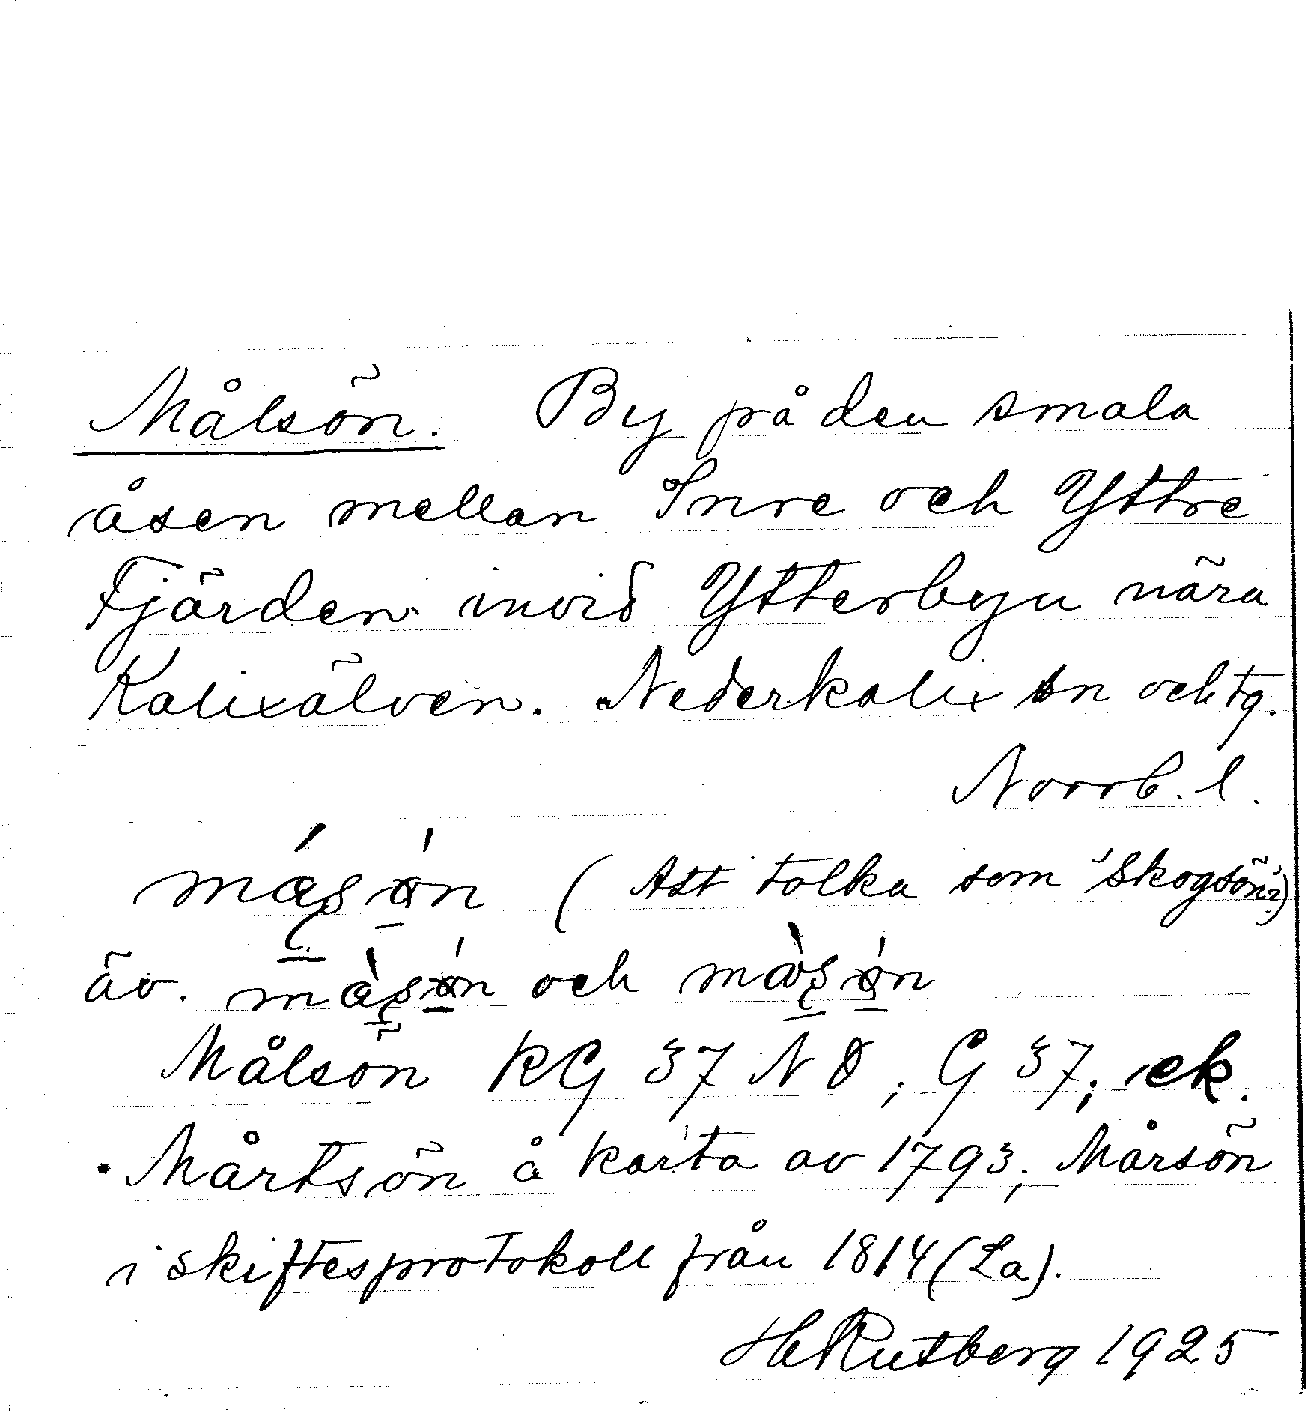 Målsön. By på den smala
åsen mellan Inre och Yttre
Fjärden invid Ytterbyn nära
Kalixälven. Nederkalix sn och tg.
Norrb. l.
(Att tolka som 'Skogsön'?)
äv. och
Målsön KG 37 NO, G 37, ek.
Mårtsön å karta av 1793; Mårsön
i skiftesprotokoll från 1814 (La).
H Rutberg 1925